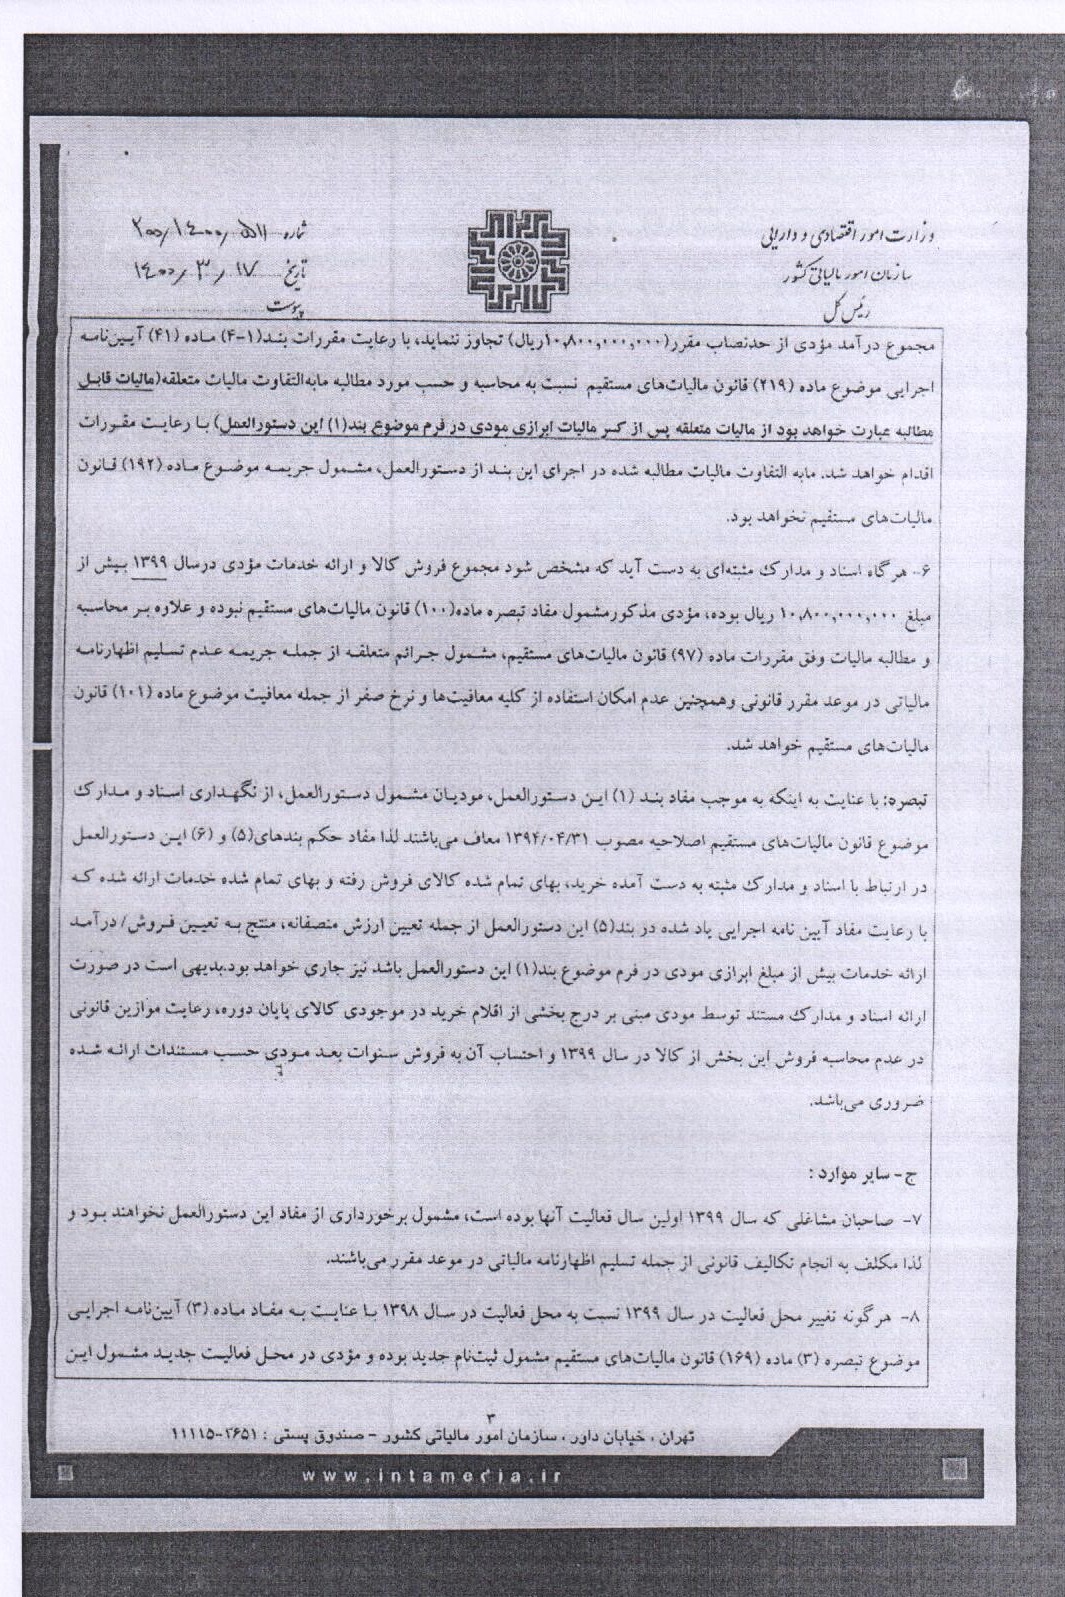 وزارت امور اقتصادی و دارایی
سازمان امور مالیاتی کشور
رئیس کل
شماره ۲۰۰/۱۴۰۰/۵۱۱
تاریخ ۱۴۰۰/۳/۱۷
پیوست
مجموع درآمد مؤدی از حدنصاب مقرر(۱۰,۸۰۰,۰۰۰,۰۰۰ریال) تجاوز ننماید، با رعایت مقررات بند(۱-۴) ماده (۴۱) آیین‌نامه
اجرایی موضوع ماده (۲۱۹) قانون مالیات‌های مستقیم نسبت به محاسبه و حسب مورد مطالبه مابه‌التفاوت مالیات متعلقه(مالیات قابل
مطالبه عبارت خواهد بود از مالیات متعلقه پس از کسر مالیات ابرازی مودی در فرم موضوع بند(۱) این دستورالعمل) با رعایت مقررات
اقدام خواهد شد. مابه التفاوت مالیات مطالبه شده در اجرای این بند از دستورالعمل، مشمول جریمه موضوع ماده (۱۹۲) قانون
مالیات‌های مستقیم نخواهد بود.
۶- هرگاه اسناد و مدارک مثبته‌ای به دست آید که مشخص شود مجموع فروش کالا و ارائه خدمات مؤدی درسال ۱۳۹۹ بیش از
مبلغ ۱۰,۸۰۰,۰۰۰,۰۰۰ ریال بوده، مؤدی مذکورمشمول مفاد تبصره ماده(۱۰۰) قانون مالیات‌های مستقیم نبوده و علاوه بر محاسبه
و مطالبه مالیات وفق مقررات ماده (۹۷) قانون مالیات‌های مستقیم، مشمول جرائم متعلقه از جمله جریمه عدم تسلیم اظهارنامه
مالیاتی در موعد مقرر قانونی وهمچنین عدم امکان استفاده از کلیه معافیت‌ها و نرخ صفر از جمله معافیت موضوع ماده (۱۰۱) قانون
مالیات‌های مستقیم خواهد شد.
تبصره: با عنایت به اینکه به موجب مفاد بند (۱) این دستورالعمل، مودیان مشمول دستورالعمل، از نگهداری اسناد و مدارک
موضوع قانون مالیات‌های مستقیم اصلاحیه مصوب ۱۳۹۴/۰۴/۳۱ معاف می‌باشند لذا مفاد حکم بندهای(۵) و (۶) این دستورالعمل
در ارتباط با اسناد و مدارک مثبته به دست آمده خرید، بهای تمام شده کالای فروش رفته و بهای تمام شده خدمات ارائه شده که
با رعایت مفاد آیین نامه اجرایی یاد شده در بند(۵) این دستورالعمل از جمله تعیین ارزش منصفانه، منتج به تعیین فروش/ درآمد
ارائه خدمات بیش از مبلغ ابرازی مودی در فرم موضوع بند(۱) این دستورالعمل باشد نیز جاری خواهد بود.بدیهی است در صورت
ارائه اسناد و مدارک مستند توسط مودی مبنی بر درج بخشی از اقلام خرید در موجودی کالای پایان دوره، رعایت موازین قانونی
در عدم محاسبه فروش این بخش از کالا در سال ۱۳۹۹ و احتساب آن به فروش سنوات بعد مودی حسب مستندات ارائه شده
ضروری می‌باشد.
ج- سایر موارد :
۷- صاحبان مشاغلی که سال ۱۳۹۹ اولین سال فعالیت آنها بوده است، مشمول برخورداری از مفاد این دستورالعمل نخواهند بود و
لذا مکلف به انجام تکالیف قانونی از جمله تسلیم اظهارنامه مالیاتی در موعد مقرر می‌باشند.
۸- هرگونه تغییر محل فعالیت در سال ۱۳۹۹ نسبت به محل فعالیت در سال ۱۳۹۸ با عنایت به مفاد ماده (۳) آیین‌نامه اجرایی
موضوع تبصره (۳) ماده (۱۶۹) قانون مالیات‌های مستقیم مشمول ثبت‌نام جدید بوده و مؤدی در محل فعالیت جدید مشمول این
۳
تهران ، خیابان داور ، سازمان امور مالیاتی کشور - صندوق پستی : ۱۱۱۱۵-۱۶۵۱
www.intamedia.ir